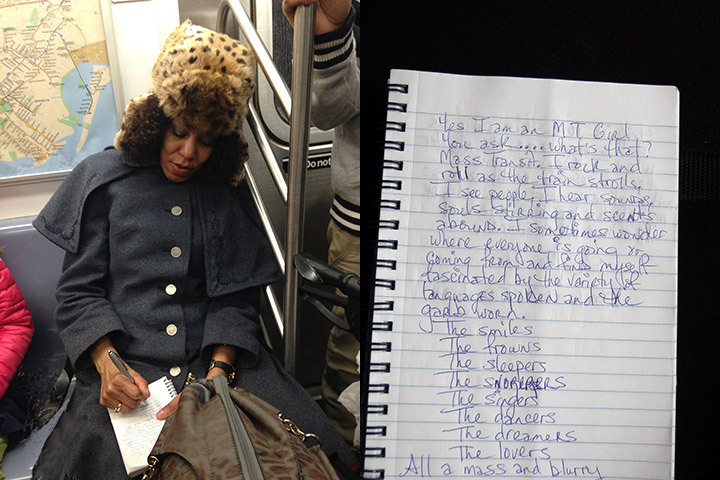 Do not
Yes I am an MT Girl
You ask....what's that?
Mass transit. I rock and
roll as the train strolls,
I see people, I hear sounds,
souls stirring and scents
abound. I sometimes wonder
where everyone is going or
coming from and find myself
fascinated by the variety of
languages spoken and the
garb worn.
The smiles
The frowns
The sleepers
The snorers
The singers
The dancers
The dreamers
The lovers
All a mass and blurry